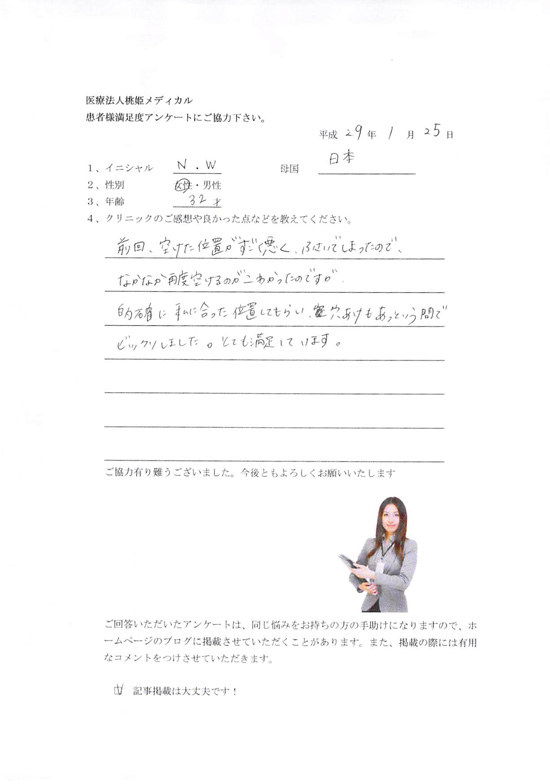 医療法人桃姫メディカル
患者様満足度アンケートにご協力下さい。
平成 29 年 1 月 25 日
1、イニシャル N.W 母国 日本
2、性別 女性・男性
3、年齢 32才
4、クリニックのご感想や良かった点などを教えてください。
前回、空けた位置がすごく悪く、ふさいでしまったので、
なかなか再度空けるのがこわかったのですが、
的確に私に合った位置してもらい、穴あけもあっという間で
ビックリしました。とても満足しています。
ご協力有り難うございました。今後ともよろしくお願いいたします
ご回答いただいたアンケートは、同じ悩みをお持ちの方の手助けになりますので、ホ
ームページのブログに掲載させていただくことがあります。また、掲載の際には有用
なコメントをつけさせていただきます。
☑ 記事掲載は大丈夫です！